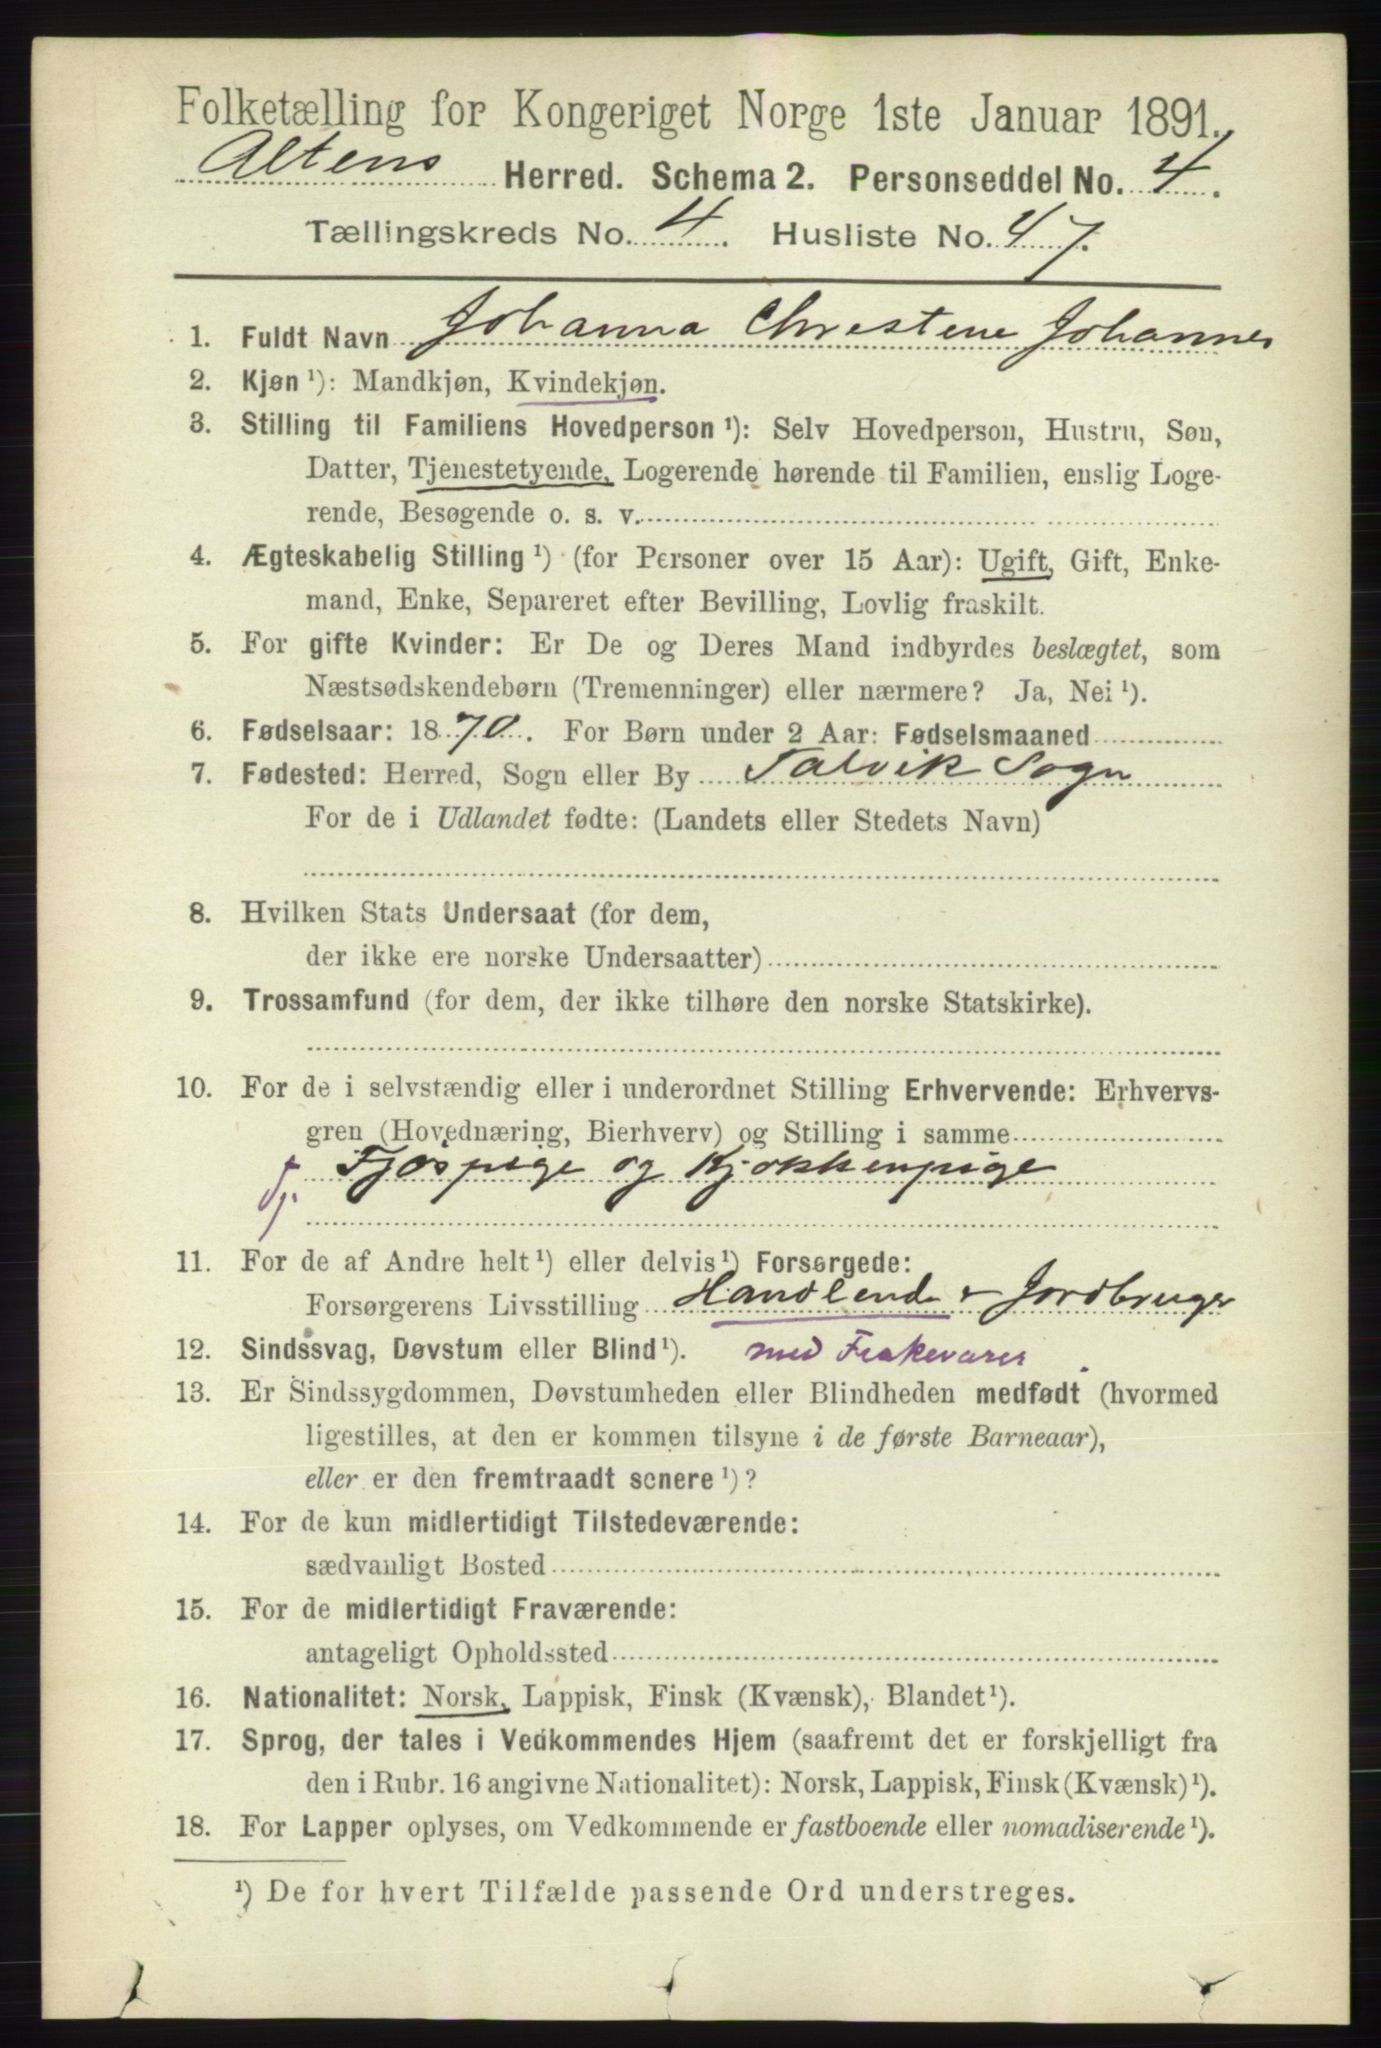 Folketælling for Kongeriget Norge 1ste Januar 1891.
Altens Herred. Schema 2. Personseddel No. 4.
Tællingskreds No. 4. Husliste No. 47.
1. Fuldt Navn Johanna Christene Johannes
2. Kjøn ¹): Mandkjøn, Kvindekjøn.
3. Stilling til Familiens Hovedperson ¹): Selv Hovedperson, Hustru, Søn,
Datter, Tjenestetyende, Logerende hørende til Familien, enslig Loge-
rende, Besøgende o. s. v.
4. Ægteskabelig Stilling ¹) (for Personer over 15 Aar): Ugift, Gift, Enke-
mand, Enke, Separeret efter Bevilling, Lovlig fraskilt.
5. For gifte Kvinder: Er De og Deres Mand indbyrdes beslægtet, som
Næstsødskendebørn (Tremenninger) eller nærmere? Ja, Nei ¹).
6. Fødselsaar: 1870. For Børn under 2 Aar: Fødselsmaaned
7. Fødested: Herred, Sogn eller By Talvik Sogn
For de i Udlandet fødte: (Landets eller Stedets Navn)
8. Hvilken Stats Undersaat (for dem,
der ikke ere norske Undersaatter)
9. Trossamfund (for dem, der ikke tilhøre den norske Statskirke).
10. For de i selvstændig eller i underordnet Stilling Erhvervende: Erhvervs-
gren (Hovednæring, Bierhverv) og Stilling i samme
Fjøspige og Kjøkkenpige
tj.
11. For de af Andre helt ¹) eller delvis ¹) Forsørgede:
Forsørgerens Livsstilling Handlende & Jordbruger
12. Sindssvag, Døvstum eller Blind ¹). med
13. Er Sindssygdommen, Døvstumheden eller Blindheden medfødt (hvormed
ligestilles, at den er kommen tilsyne i de første Barneaar),
eller er den fremtraadt senere ¹)?
14. For de kun midlertidigt Tilstedeværende:
sædvanligt Bosted
15. For de midlertidigt Fraværende:
antageligt Opholdssted
16. Nationalitet: Norsk, Lappisk, Finsk (Kvænsk), Blandet ¹).
17. Sprog, der tales i Vedkommendes Hjem (saafremt det er forskjelligt fra
den i Rubr. 16 angivne Nationalitet): Norsk, Lappisk, Finsk (Kvænsk) ¹).
18. For Lapper oplyses, om Vedkommende er fastboende eller nomadiserende ¹).
¹) De for hvert Tilfælde passende Ord understreges.